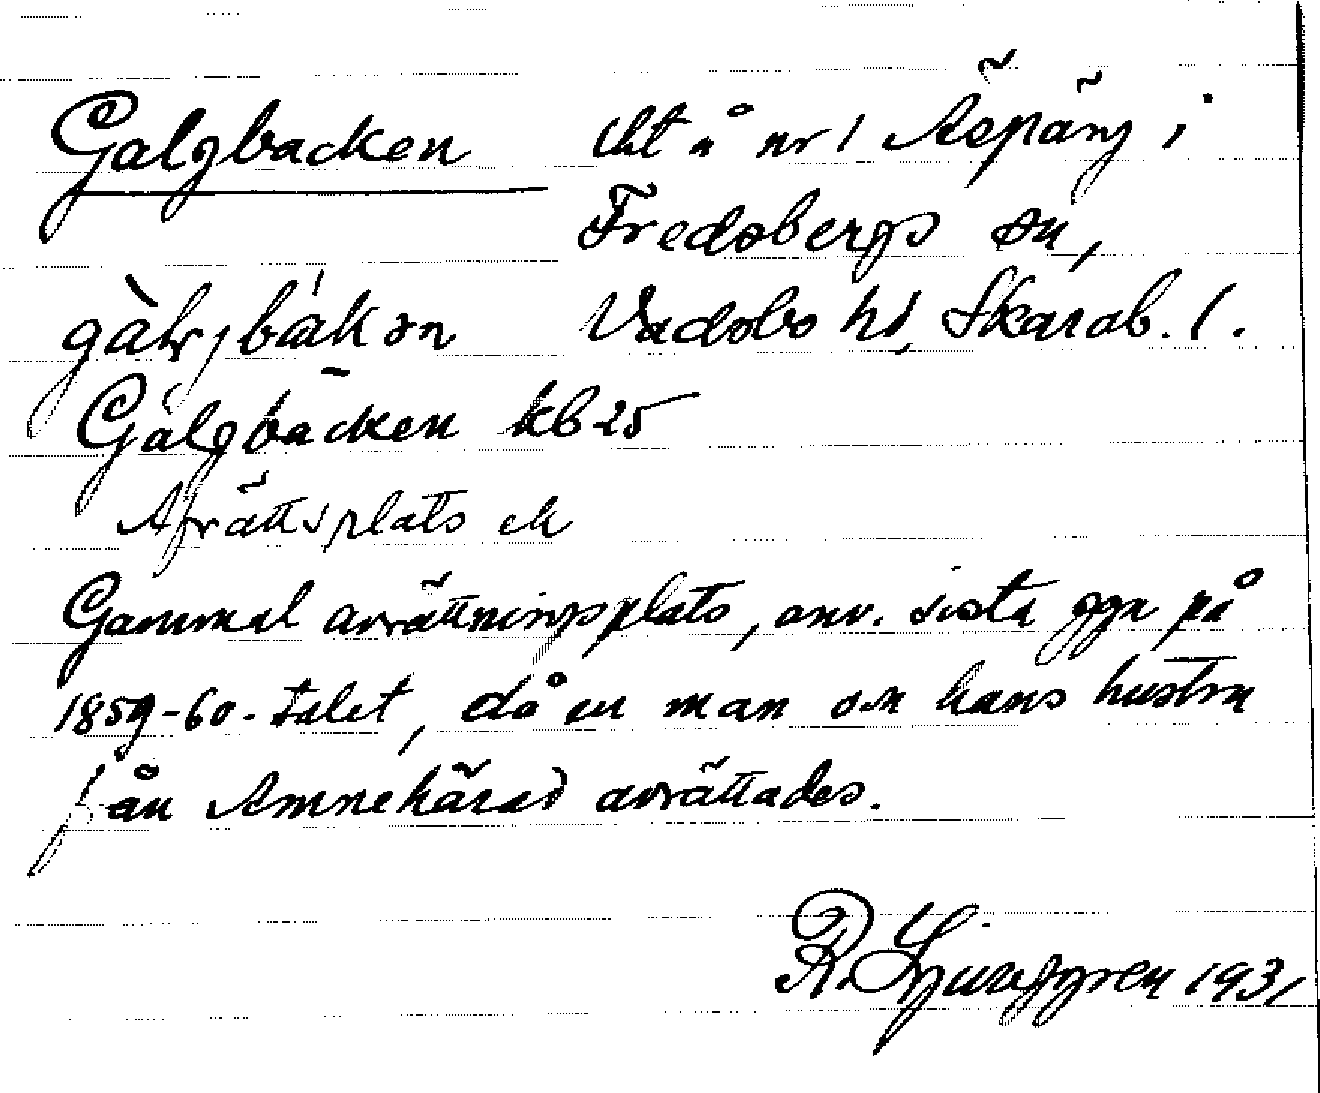 Galgbacken
Äspäng i
Fredsbergs sn,
Vadsbo hd, Skarab. l.
Galgbacken kb 25
Afrättsplats ek
Gammal avrättningsplats, anv. sista ggn på
1859-60-talet, då en man och hans hustru
från Amnehärad avrättades.
R. Ljunggren 1931